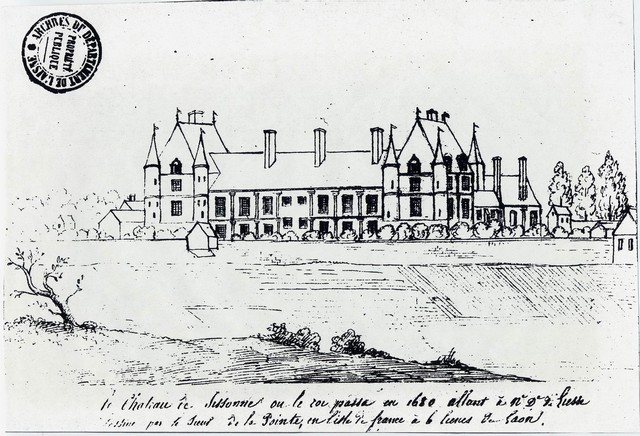 ARCHIVES DU DÉPARTEMENT DE L'AISNE
PROPRIÉTÉ
PUBLIQUE
le Chateau de Sissonne ou le roy passa en 1680 allant à N.D. de Liesse
dessine par le Sieur de la Pointe, en l'isle de france à 6 lieues de Laon.